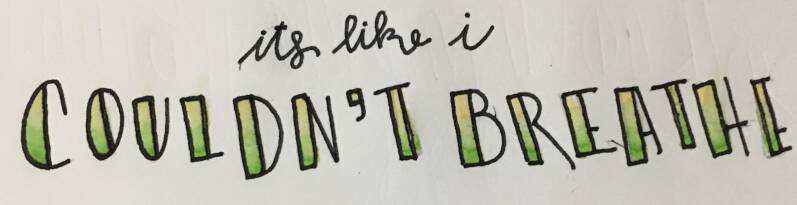 its like i
COULDN'T BREATHE